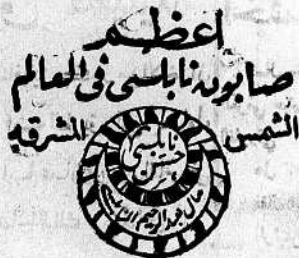 اعظم
صابون نابلسى فى العالم
الشمس المشرقيه
نابلسى
حسن
مال عبد الرحيم